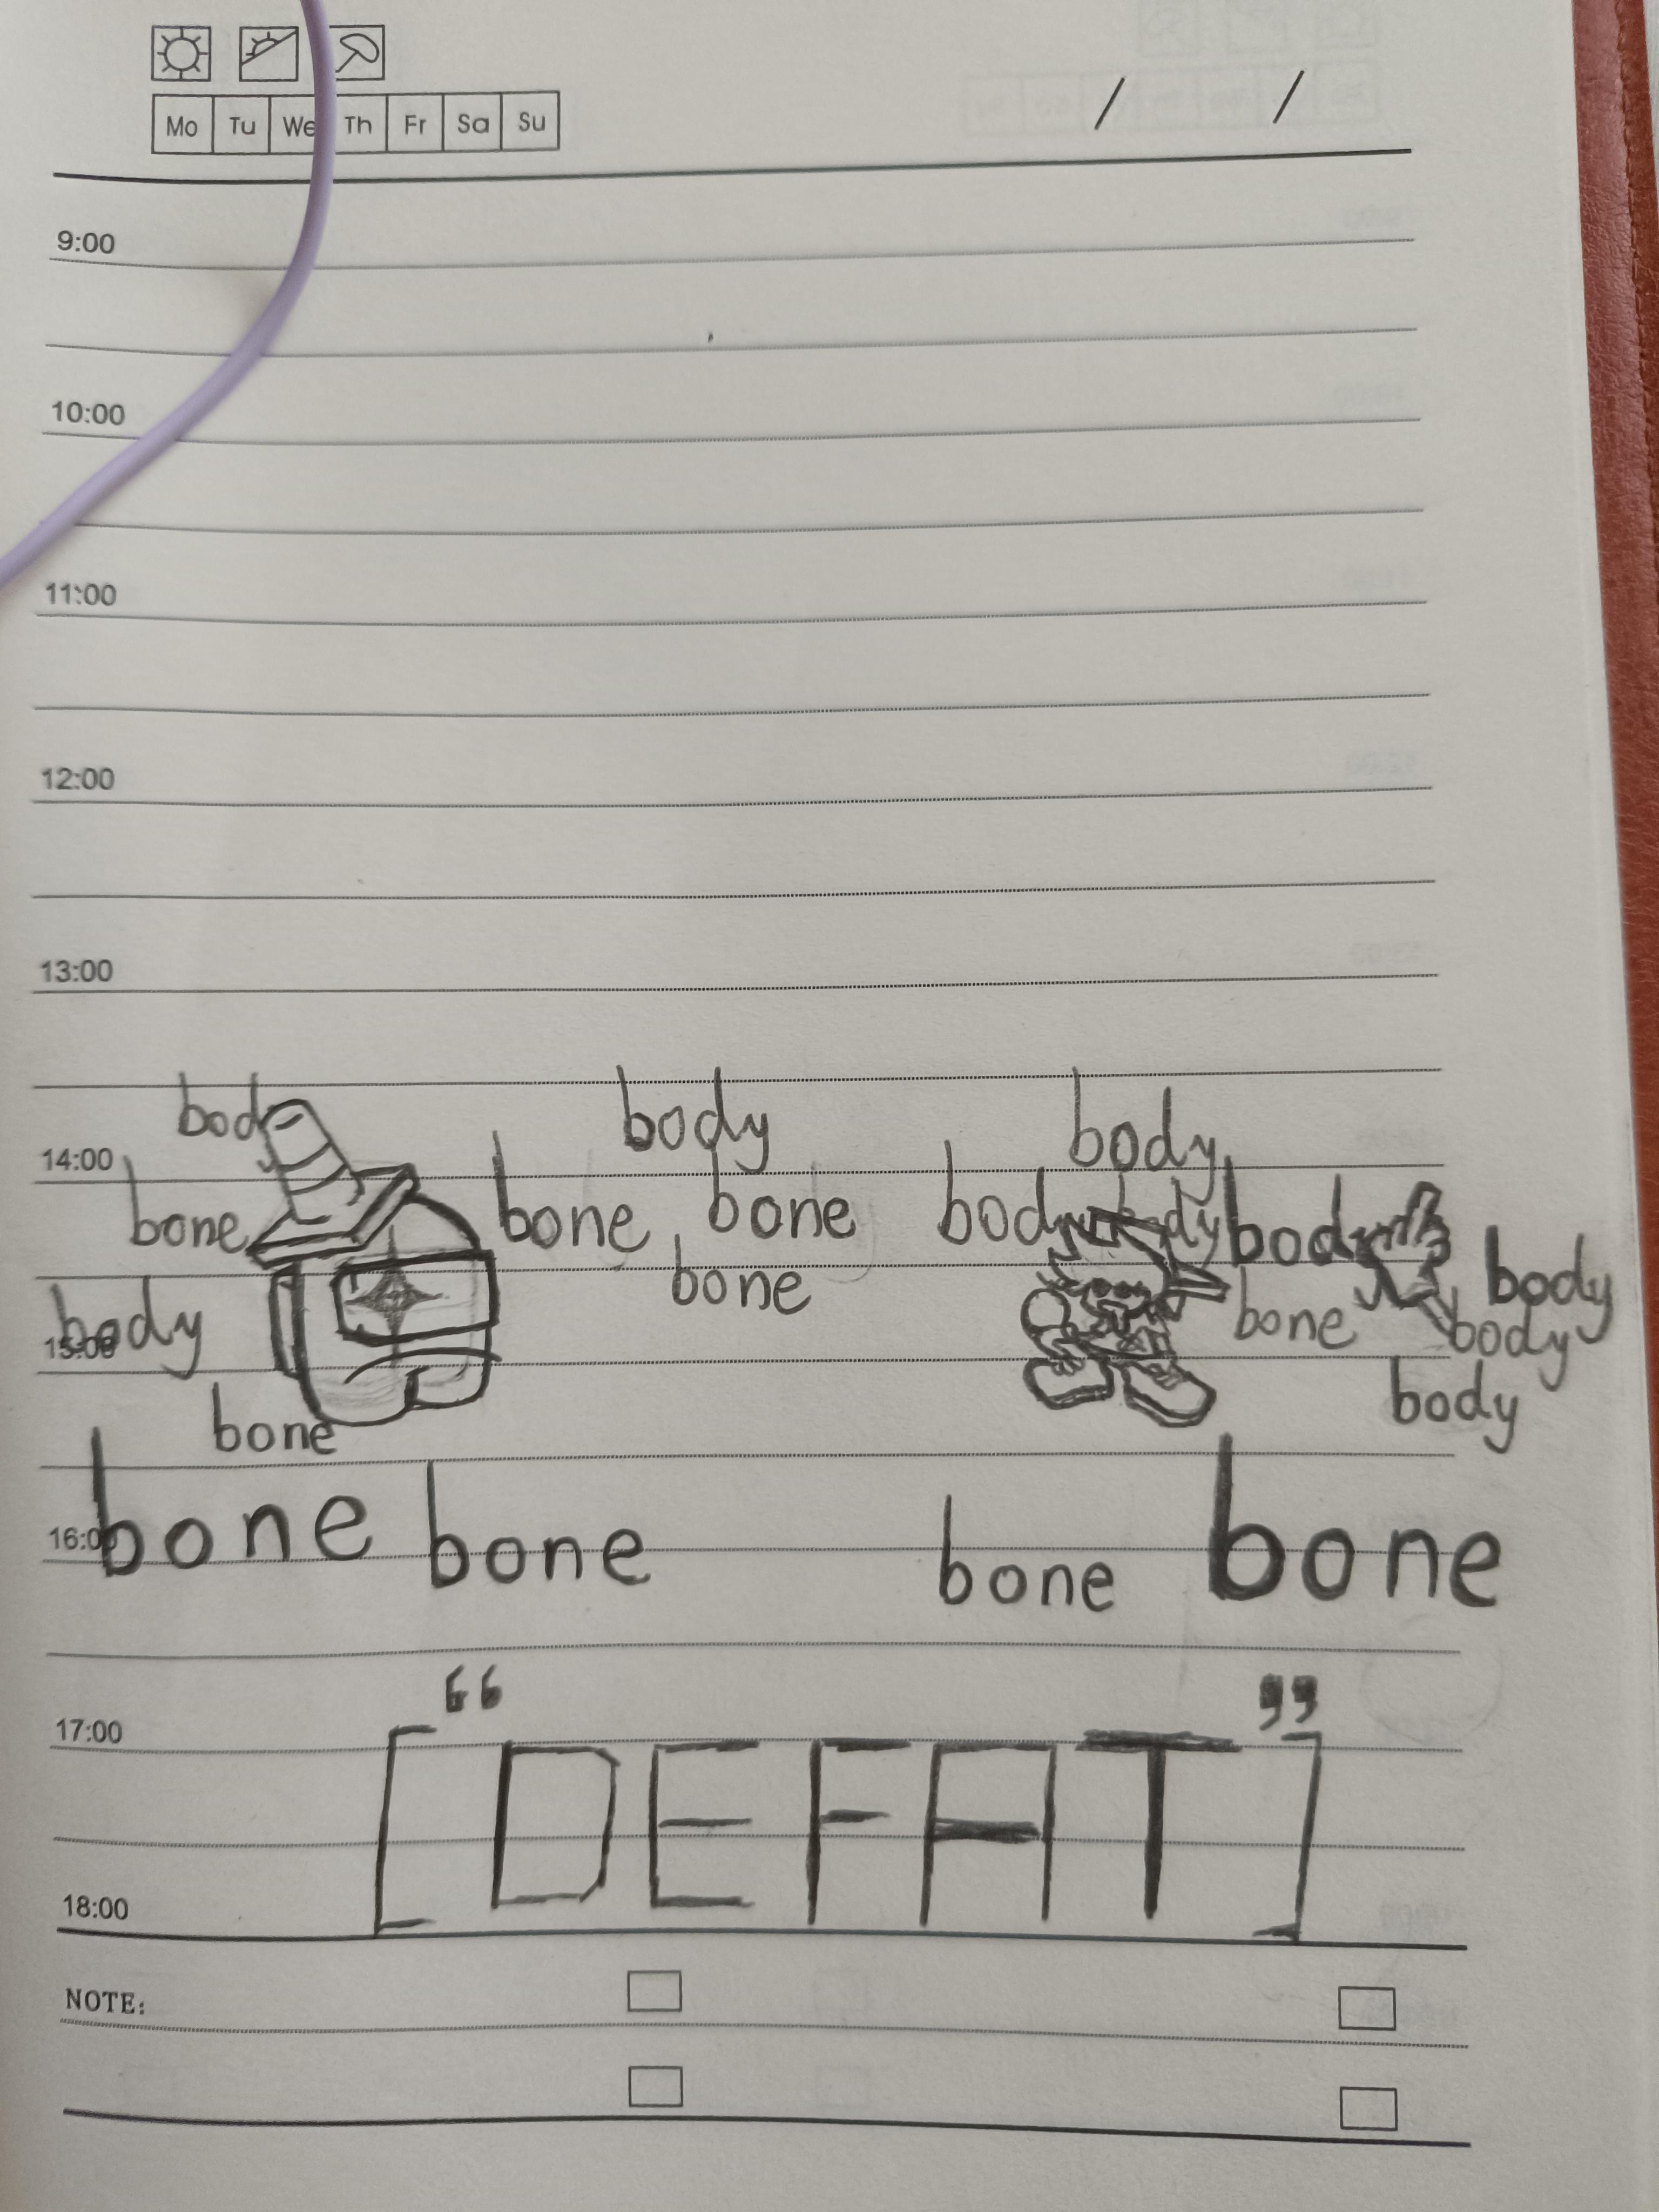 Mo Tu We Th Fr Sa Su / /
9:00
10:00
11:00
12:00
13:00
body body
14:00 body
bone bone bone body dy body
bone bone body
15:00 body body
bone body
16:00 bone bone bone bone
17:00 “ ”
[ DEFAT ]
18:00
NOTE: